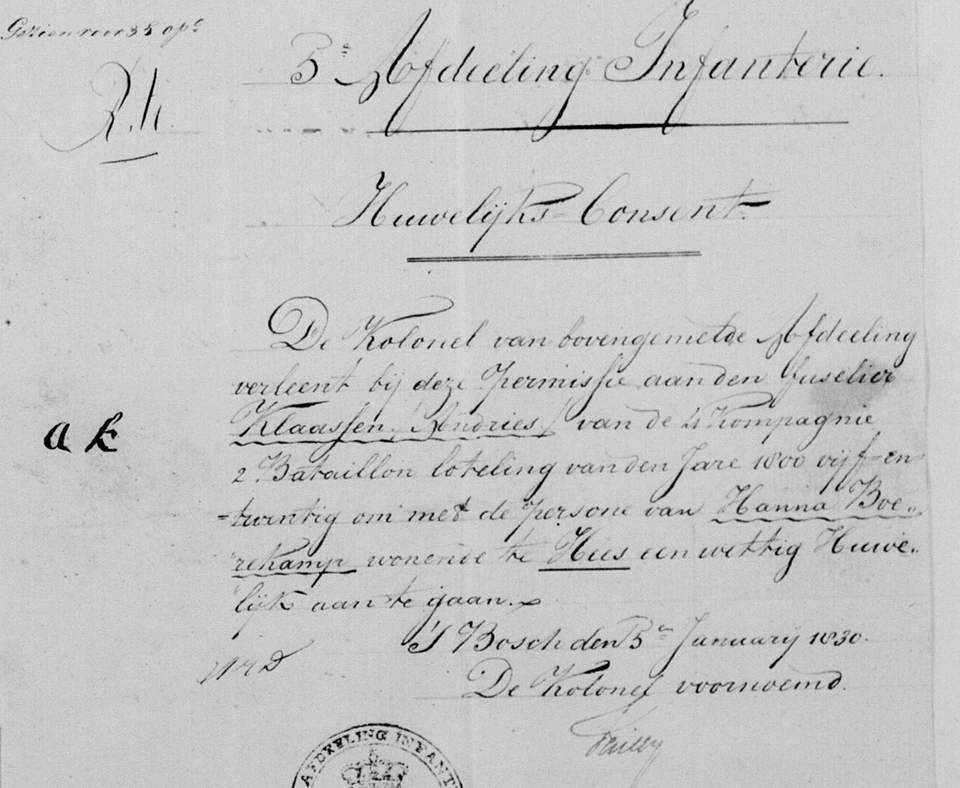 Gezien voor 35 opc
5e Afdeeling Infanterie.
R. k.
Huwelijks-Consent.
De Kolonel van bovengemelde Afdeeling
verleent bij deze permissie aan den fuselier
Klaassen, (Andries) van de 4 Kompagnie
a k
2 Bataillon loteling van den Jare 1800 vijf-en-
-twintig om met de persone van Hanna Boe„
rekamp wonende te Hees een wettig Huwe„
lijk aan te gaan.
'S Bosch den 5en January 1830.
De Kolonel voornoemd.
AFDEELING INFANT